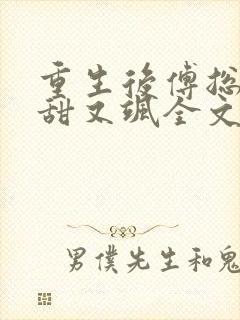 重生後傅总
甜又飒全文
男僕先生和鬼